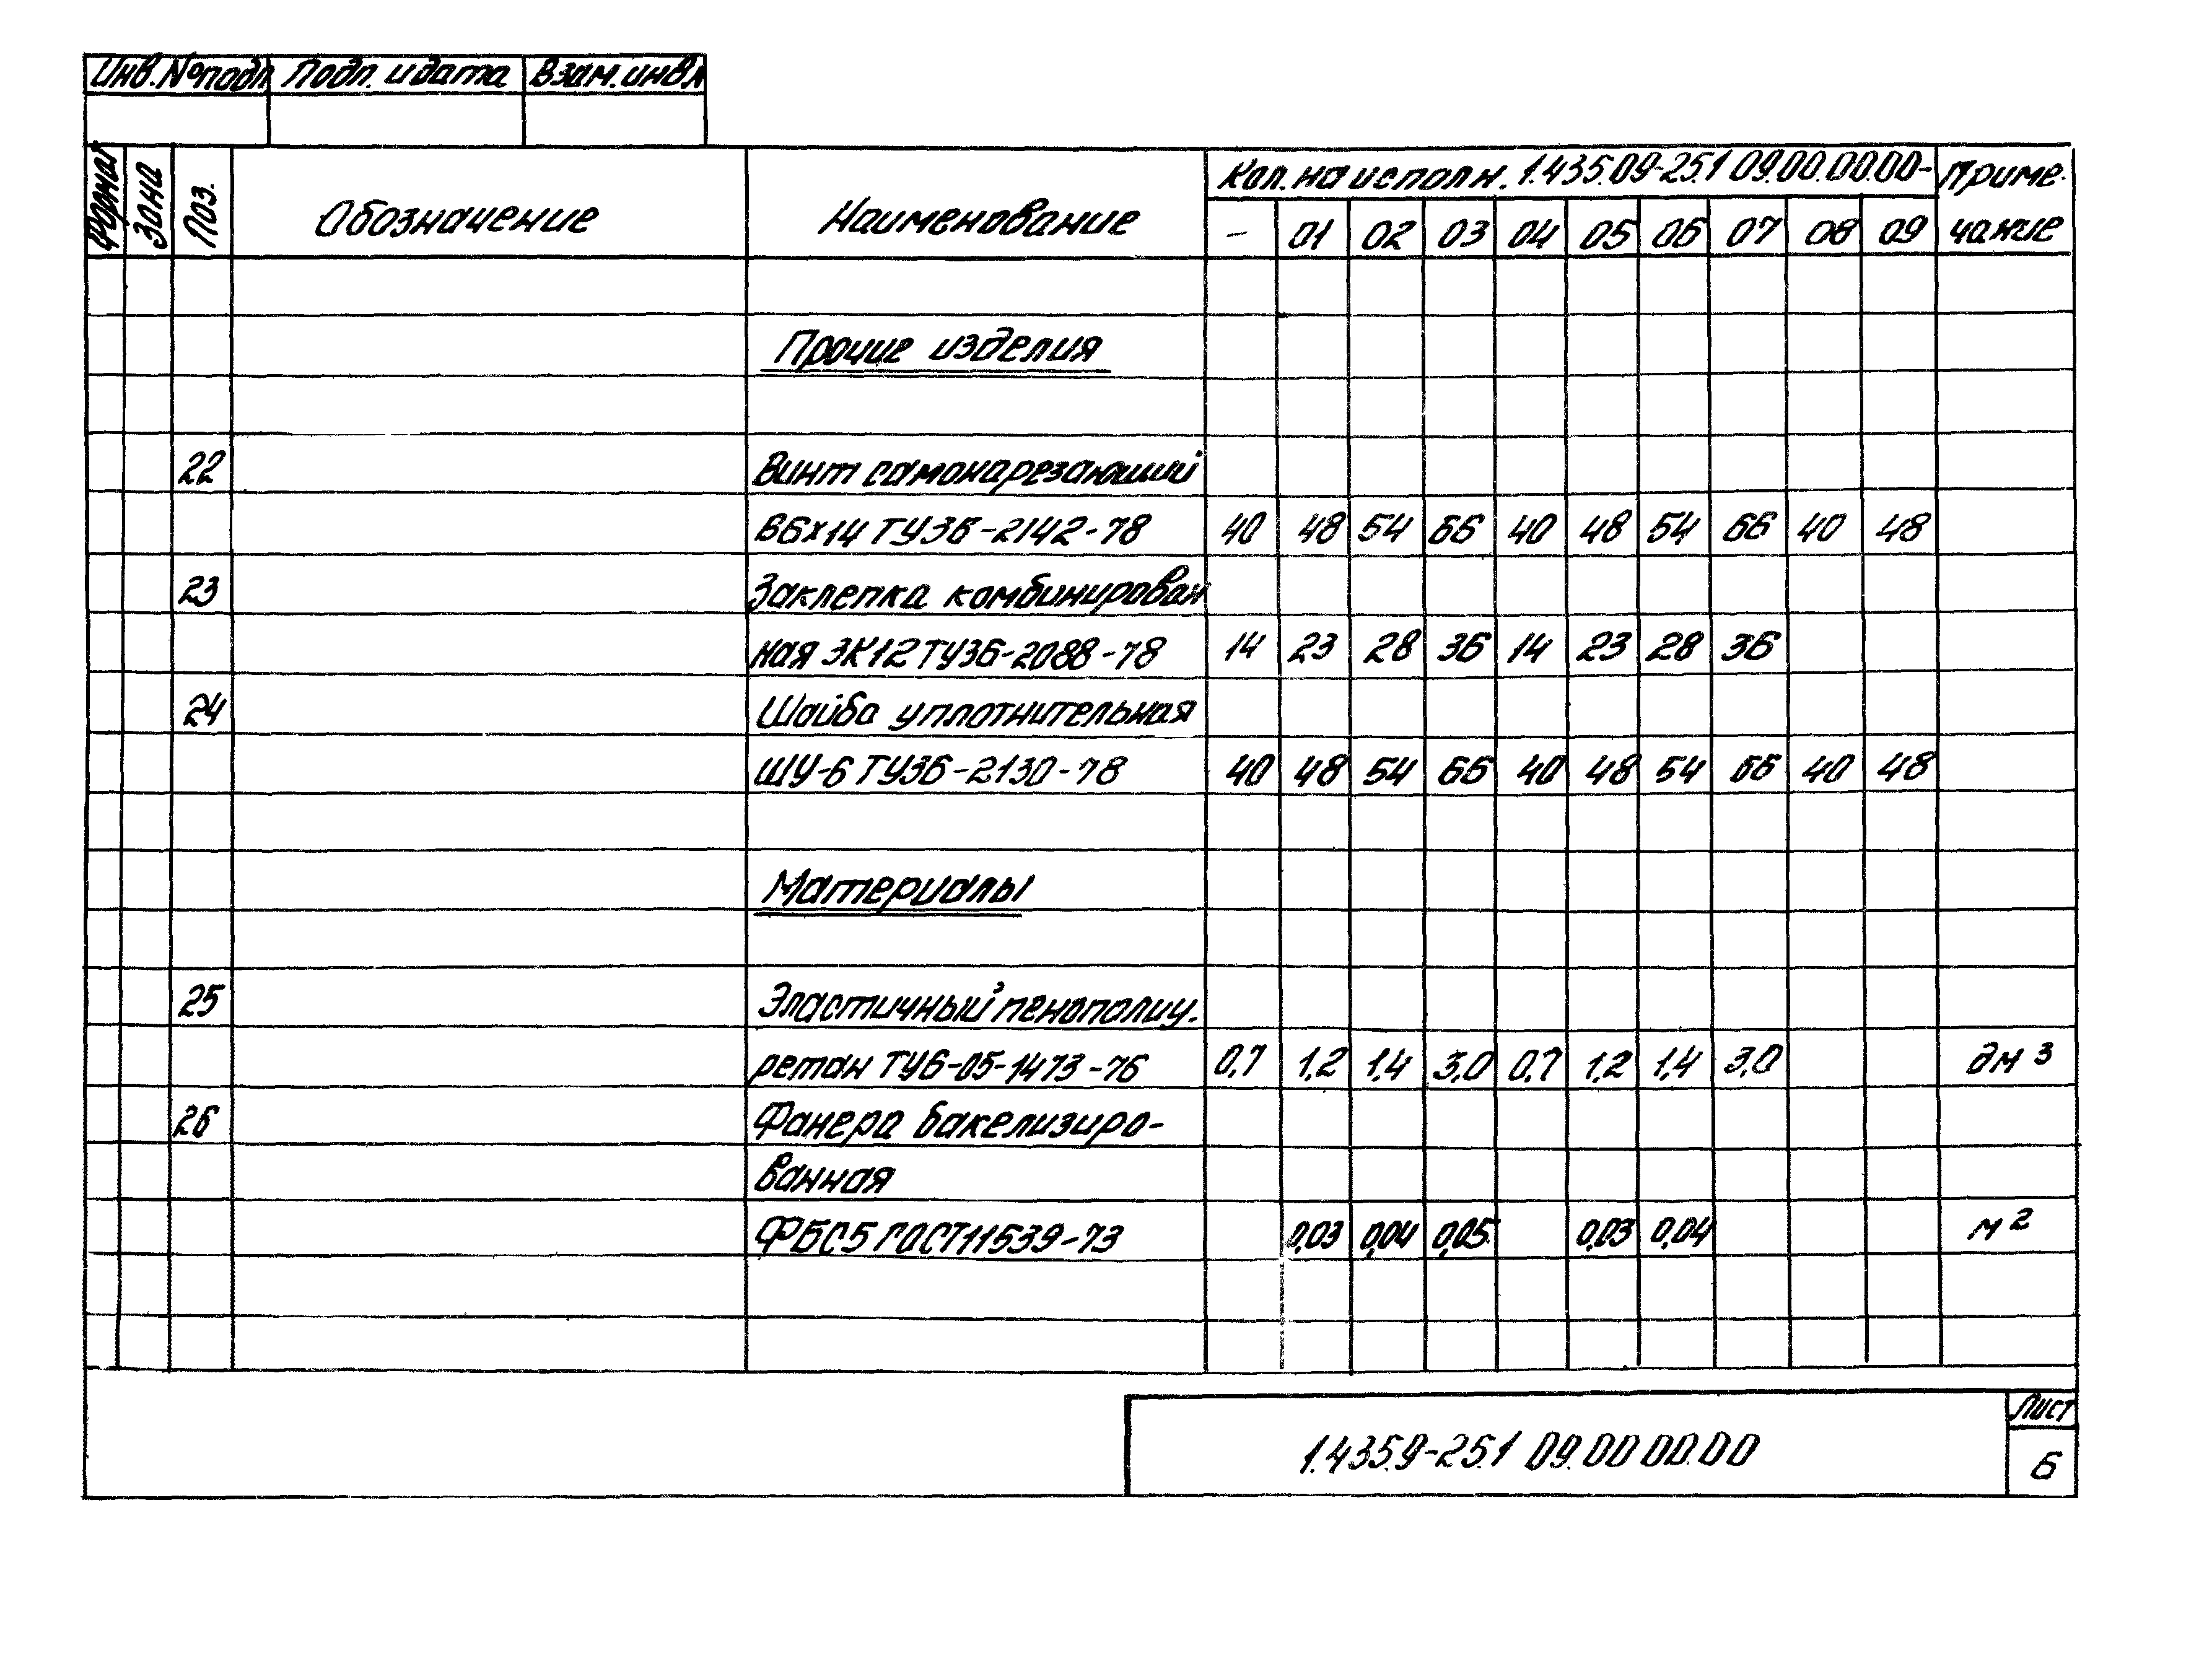 Инв.№подл Подп. и дата Взам.инв.№
Формат Зона Поз. Обозначение Наименование Кол. на исполн. 1.435.09-25.1 09.00.00.00- Приме-
- 01 02 03 04 05 06 07 08 09 чание
Прочие изделия
22 Винт самонарезающий
В6х14 ТУ36-2142-78 40 48 54 66 40 48 54 66 40 48
23 Заклепка комбинирован
ная ЗК12 ТУ36-2088-78 14 23 28 36 14 23 28 36
24 Шайба уплотнительная
ШУ-6 ТУ36-2130-78 40 48 54 66 40 48 54 66 40 48
Материалы
25 Эластичный пенополиу-
ретан ТУ6-05-1473-76 0,7 1,2 1,4 3,0 0,7 1,2 1,4 3,0 дм³
26 Фанера бакелизиро-
ванная
ФБС5 ГОСТ11539-73 0,03 0,04 0,05 0,03 0,04 м²
1.435.9-25.1 09.00 00.00
Лист
6